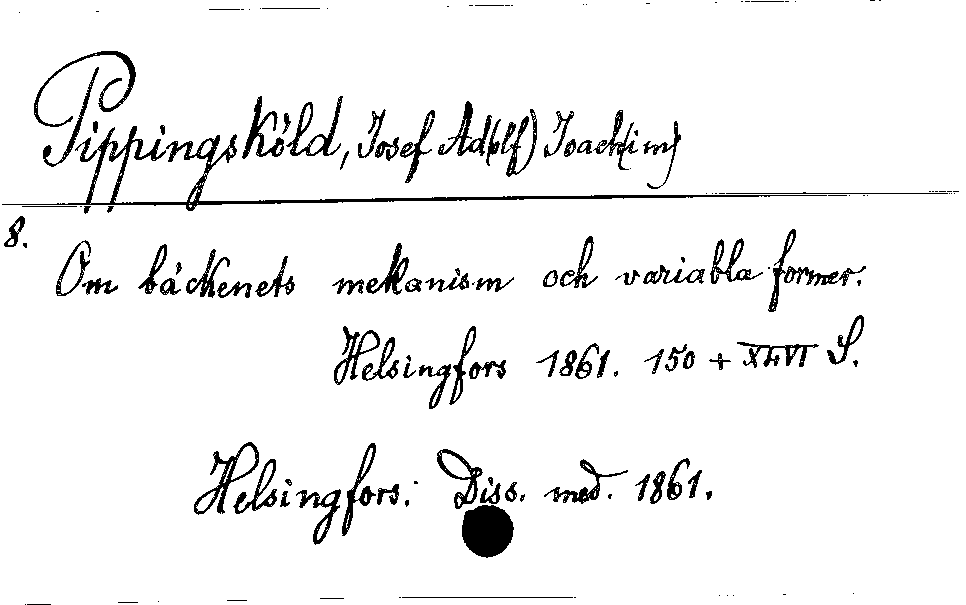 Pippingsköld, Josef Ad(olf) Joach(im)
8.
Om bäckenets mekanism och variabla former.
Helsingfors 1861. 150 + XLVI S.
Helsingfors: Diss. med. 1861.